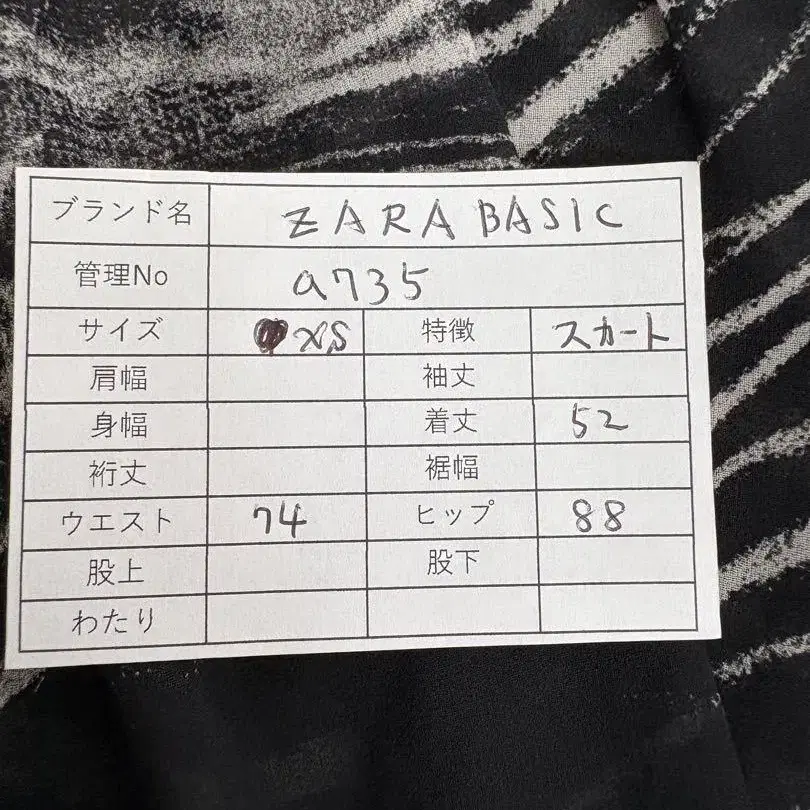 ブランド名 ZARA BASIC
管理No a735
サイズ XS 特徴 スカート
肩幅 袖丈
身幅 着丈 52
裄丈 裾幅
ウエスト 74 ヒップ 88
股上 股下
わたり